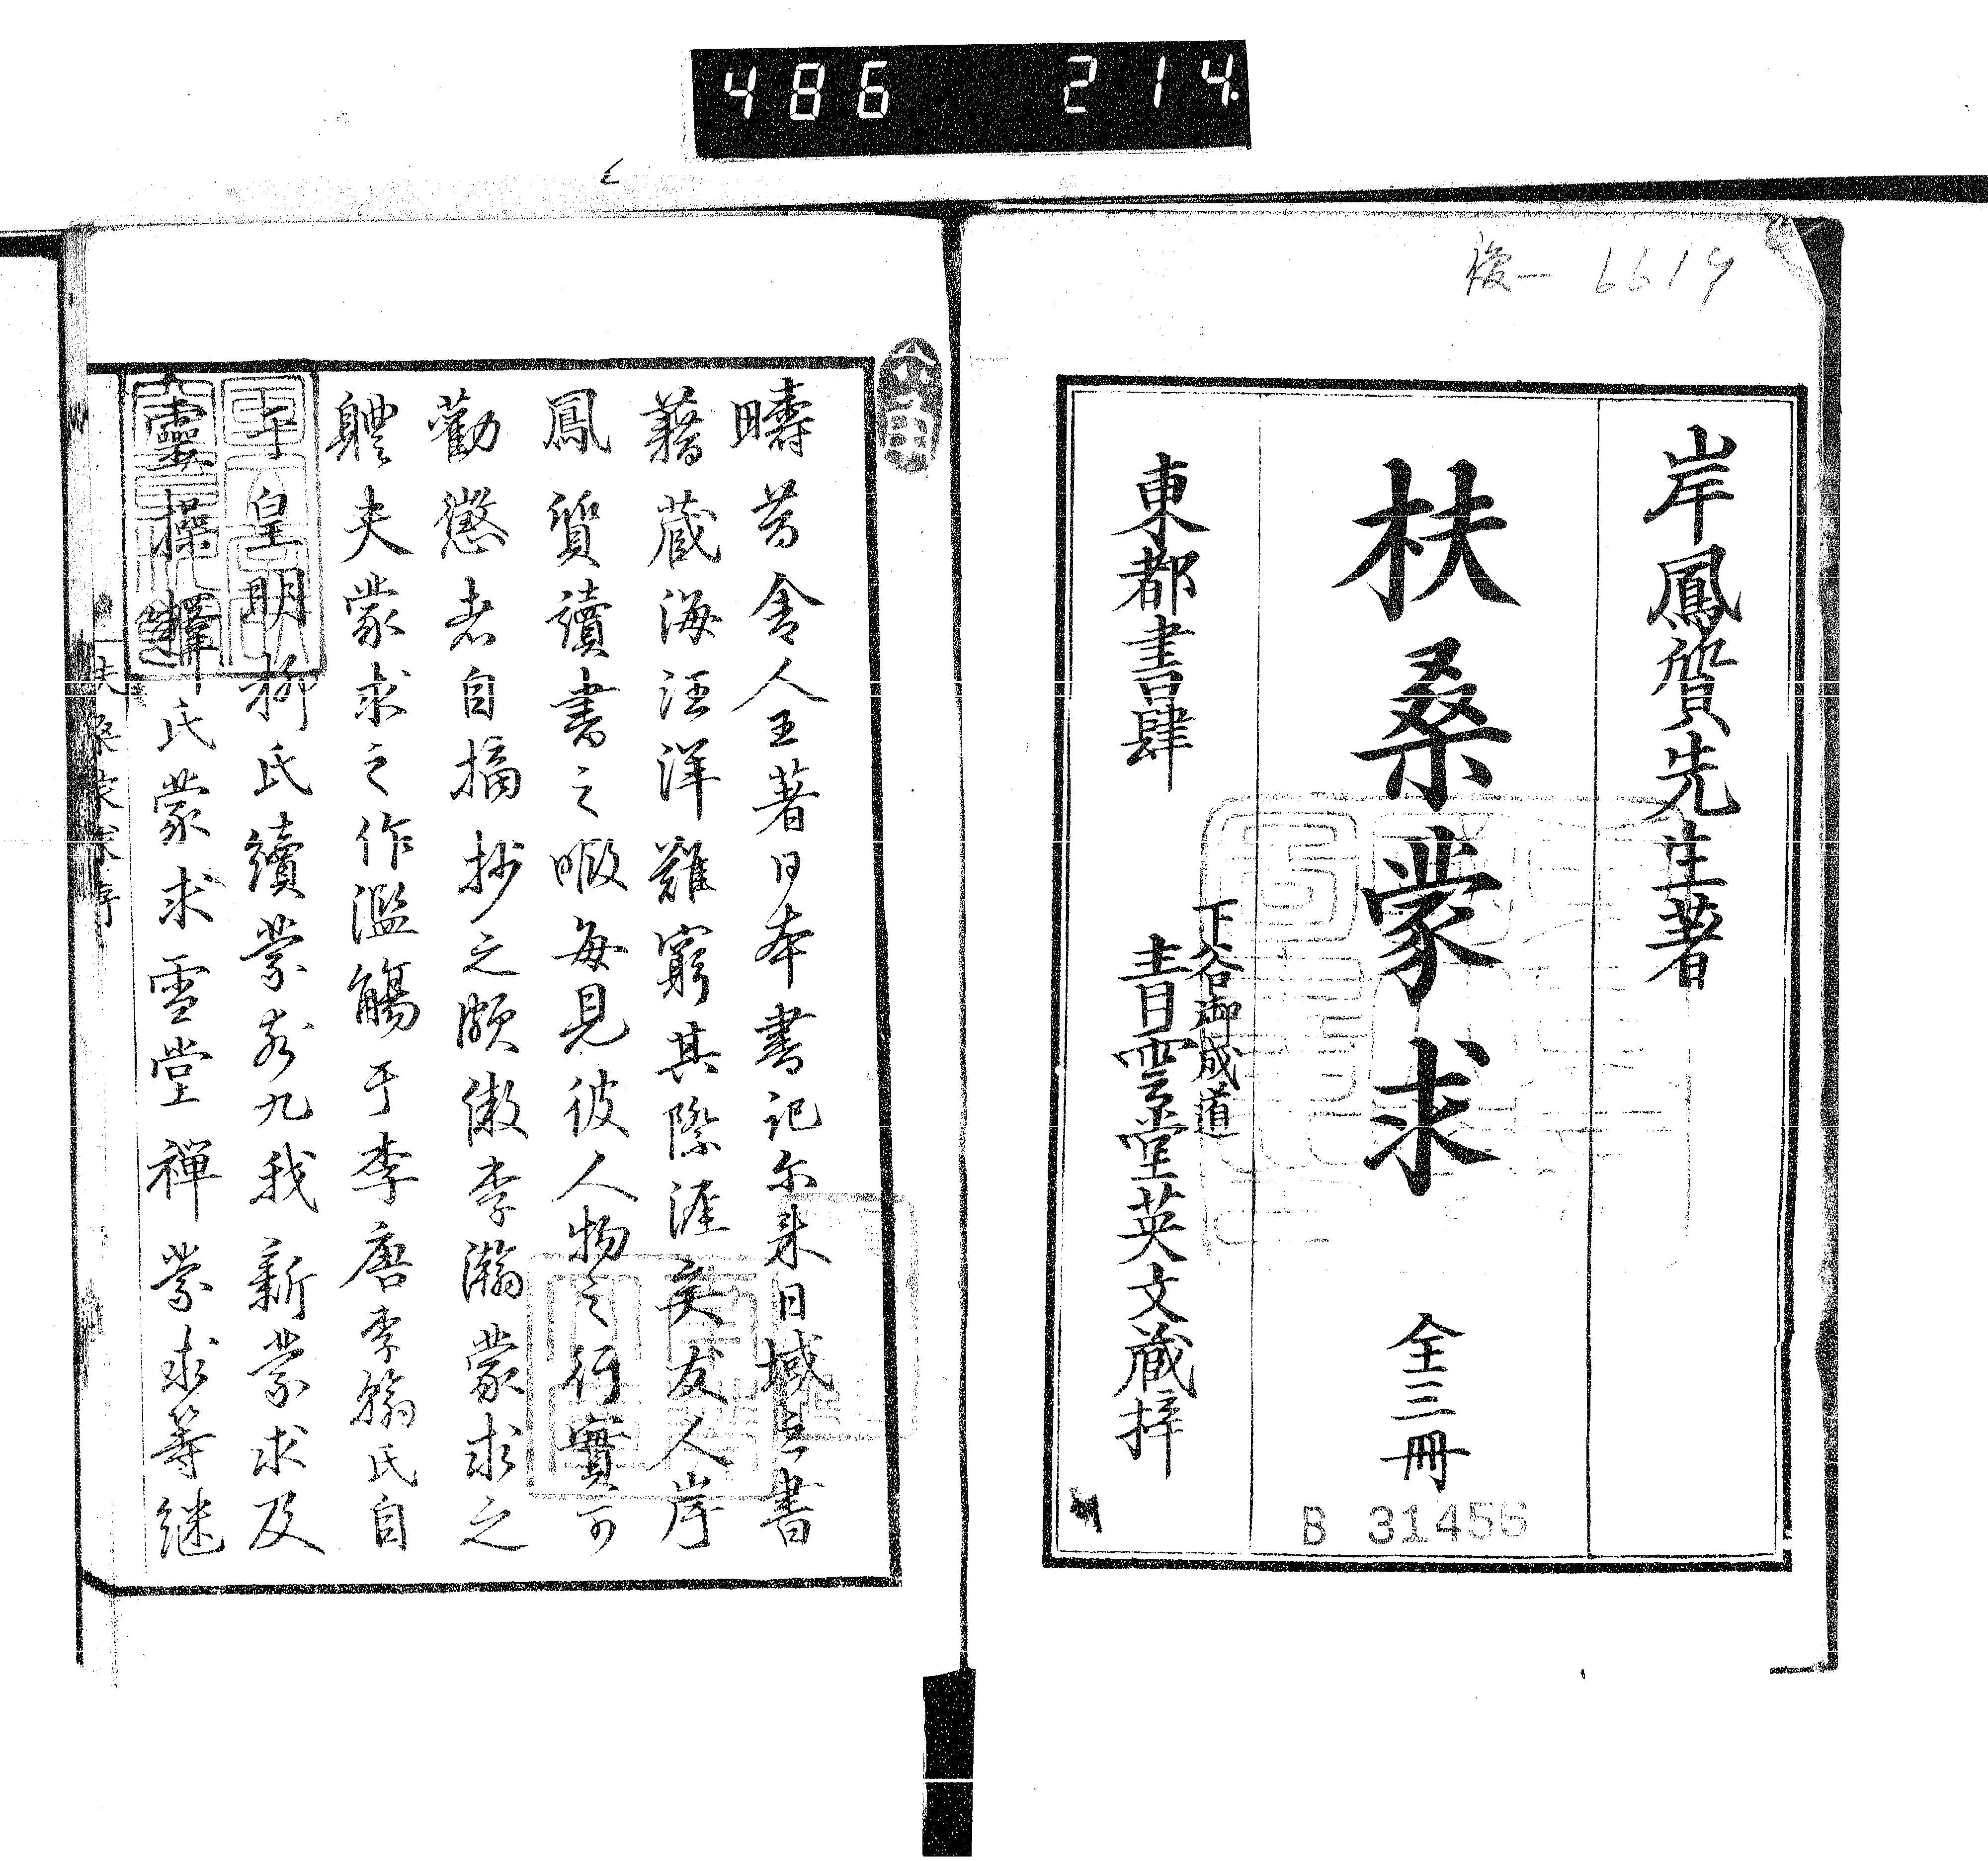 486 214.
複一 6619
岸鳳質先生著
扶桑蒙求 全三冊
東都書肆 下谷御成道 青雲堂英文蔵梓
B 31456
疇昔舍人王著日本書記尓来日域之書
藉蔵海汪洋難窮其際涯矣友人岸
鳳質讀書之暇每見彼人物之行實可
勸懲者自摘抄之頗倣李瀚蒙求之
軆夫蒙求之作濫觴于李唐李翰氏自
皇明柳氏續蒙求九我新蒙求及
靈操釋氏蒙求雪堂禪蒙求等継
扶桑蒙求序